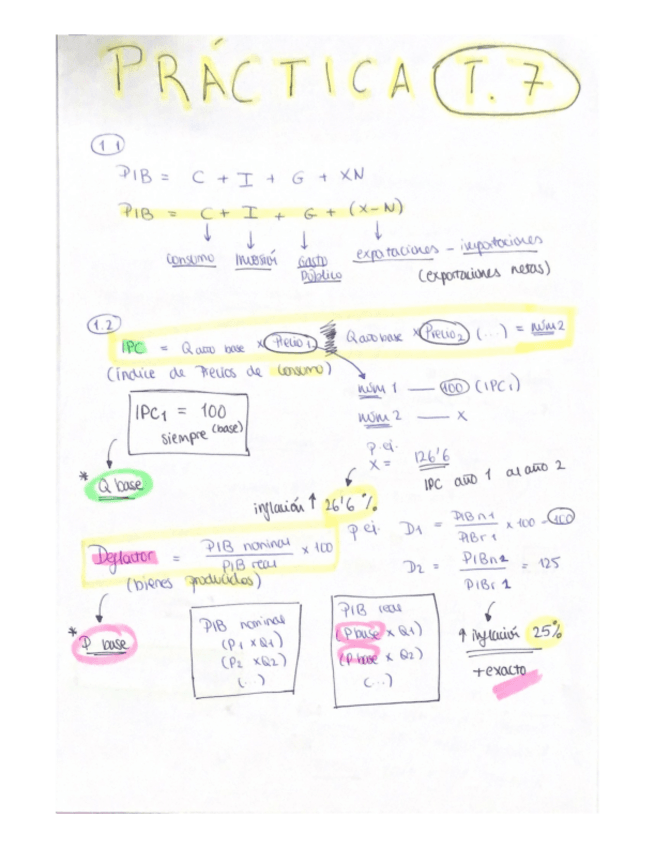 PRÁCTICA T. 7
1.1
PIB = C + I + G + XN
PIB = C + I + G + (X-N)
Consumo Inversión Gasto Público exportaciones - importaciones
(exportaciones netas)
1.2
IPC = Q año base x Precio1 Q año base x Precio2 (...) = núm 2
(índice de Precios de consumo)
núm 1 — 100 (IPC1)
núm 2 — x
IPC1 = 100
siempre (base)
p.ej.
x = 126'6
IPC año 1 al año 2
* Q base
inflación ↑ 26'6 %
Deflactor = PIB nominal / PIB real x 100
(bienes producidos)
p ej. D1 = PIBn1 / PIBr1 x 100 = 100
D2 = PIBn2 / PIBr2 = 125
* P base
PIB nominal
(P1 x Q1)
(P2 x Q2)
(...)
PIB real
(P base x Q1)
(P base x Q2)
(...)
↑ inflación 25%
+ exacto